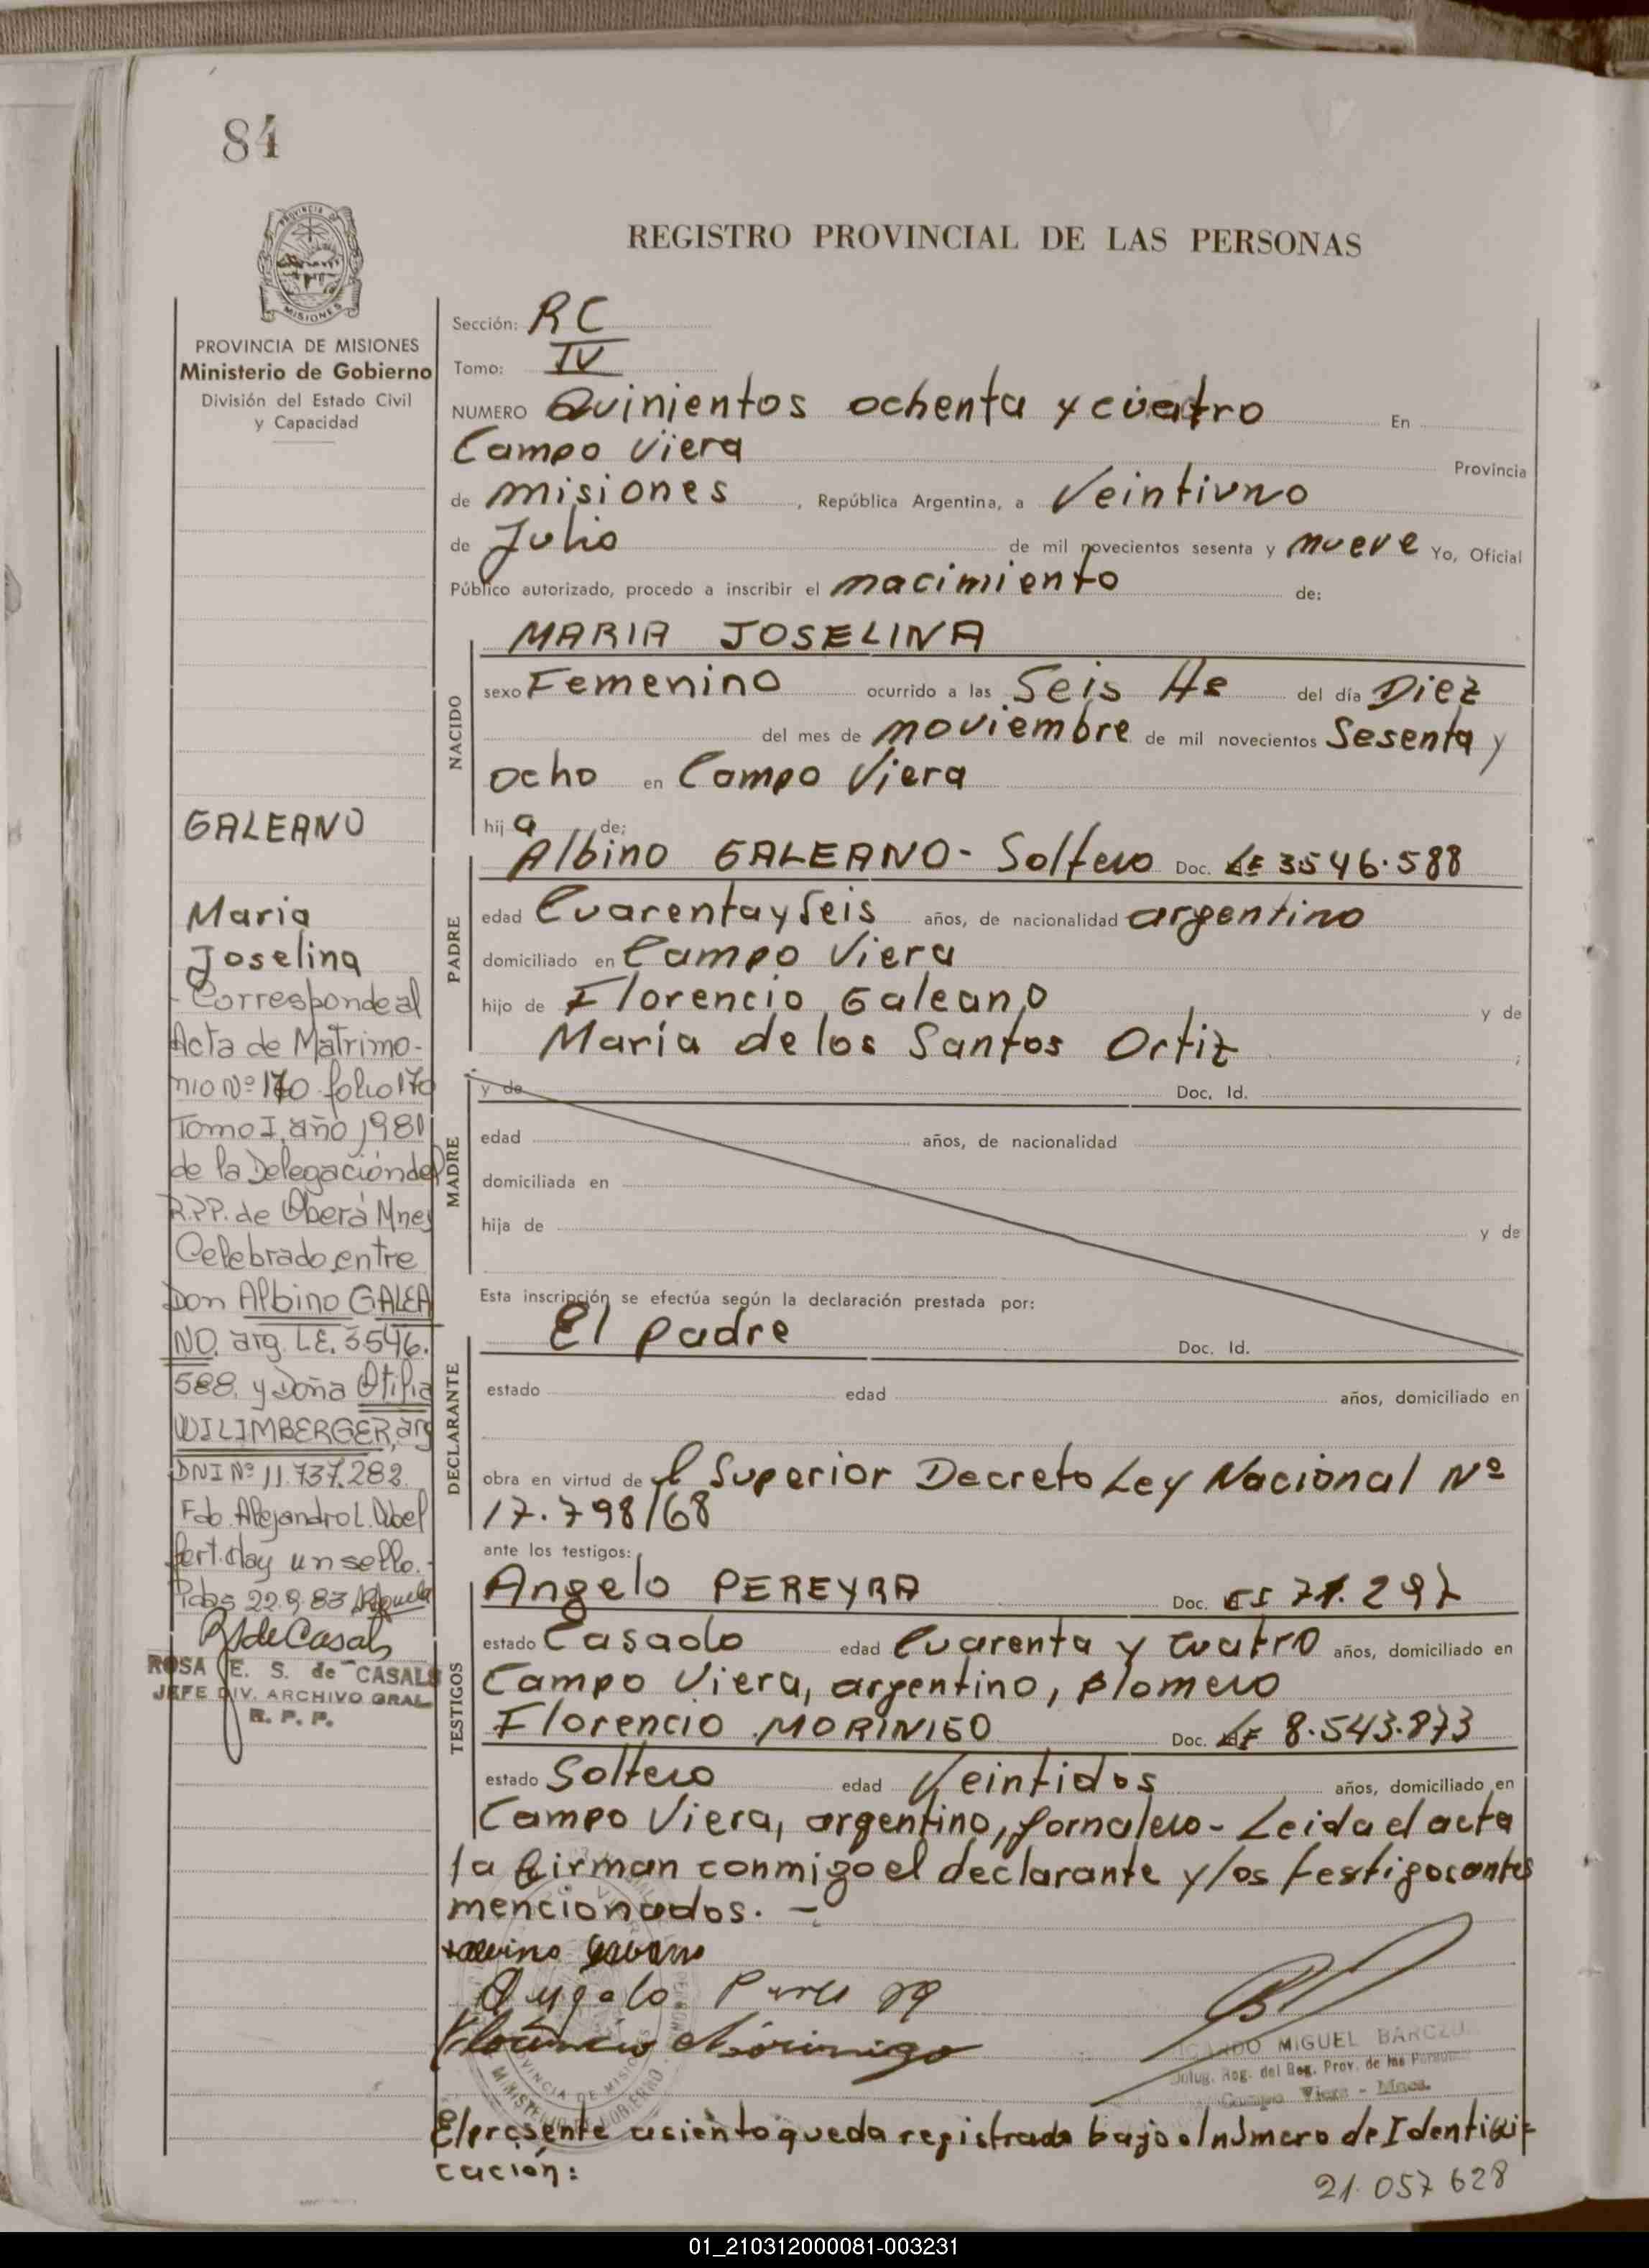 84
REGISTRO PROVINCIAL DE LAS PERSONAS
PROVINCIA DE MISIONES
Ministerio de Gobierno
División del Estado Civil
y Capacidad
GALEANO
Maria
Joselina
- Corresponde al
Acta de Matrimo-
nio Nº 170 folio 170
Tomo I, año 1981
de la Delegación del
R.P.P. de Oberá Mnes
Celebrado entre
Don Albino GALEA
NO. arg. L.E. 3.546.
588. y Doña Otilia
WILIMBERGER, arg
DNI Nº 11.737.282.
Fdo. Alejandro L.
fert. Hay un sello.-
Pdas 22.9.83
RSdeCasals
ROSA E. S. de CASALS
JEFE DIV. ARCHIVO GRAL
R. P. P.
Sección: RC
Tomo: IV
NUMERO Quinientos ochenta y cuatro En
Campo Viera Provincia
de misiones , República Argentina, a Veintiuno
de Julio de mil novecientos sesenta y nueve Yo, Oficial
Público autorizado, procedo a inscribir el nacimiento de:
NACIDO
MARIA JOSELINA
sexo Femenino ocurrido a las Seis Hs del día Diez
del mes de noviembre de mil novecientos Sesenta y
ocho en Campo Viera
hij a de;
PADRE
Albino GALEANO - Soltero Doc. LE 3546.588
edad Cuarenta y Seis años, de nacionalidad argentino
domiciliado en Campo Viera
hijo de Florencio Galeano y de
María de los Santos Ortiz ;
MADRE
y de Doc. Id.
edad años, de nacionalidad
domiciliada en
hija de y de
Esta inscripción se efectúa según la declaración prestada por:
DECLARANTE
El padre Doc. Id.
estado edad años, domiciliado en
obra en virtud de l Superior Decreto Ley Nacional Nº
17.798/68
ante los testigos:
TESTIGOS
Angelo PEREYRA Doc. CI 71.297
estado Casado edad Cuarenta y cuatro años, domiciliado en
Campo Viera, argentino, plomero
Florencio MORINIGO Doc. LE 8.543.873
estado Soltero edad Veintidos años, domiciliado en
Campo Viera, argentino, jornalero - Leida el acta
la firman conmigo el declarante y los testigos antes
mencionados. -
Florencio Morinigo
MIGUEL BARCZU
Deleg. Reg. del Reg. Prov. de las Personas
Campo Viera - Mnes.
PROVINCIA DE MISIONES
MINISTERIO DE GOBIERNO
El presente asiento queda registrado bajo el número de Identifi-
cación:
21.057.628
01_210312000081-003231